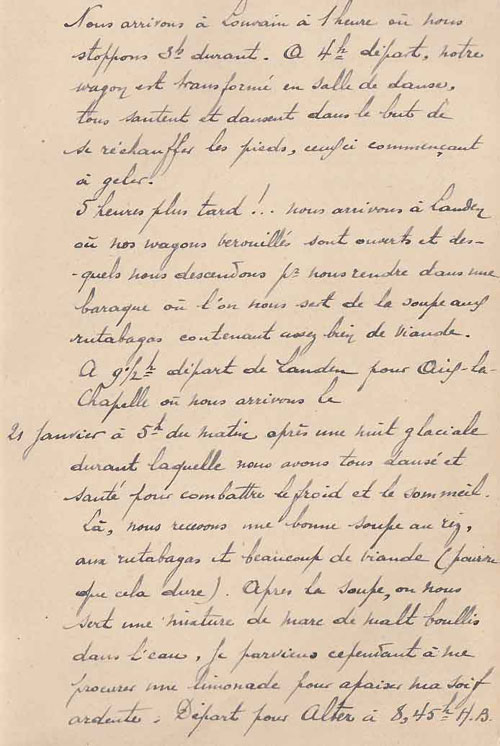 Nous arrivons à Louvain à 1 heure où nous
stoppons 3h durant. A 4h départ, notre
wagon est transformé en salle de danse,
tous sautent et dansent dans le but de
se réchauffer les pieds, ceux ci commençant
à geler.
5 heures plus tard !.. nous arrivons à Landen
où nos wagons verouillés sont ouverts et des-
-quels nous descendons pr nous rendre dans une
baraque où l'on nous sert de la soupe aux
rutabagas contenant assez bien de viande.
A 9 1/2 h départ de Landen pour Aix-la-
Chapelle où nous arrivons le
21 Janvier à 5h du matin après une nuit glaciale
durant laquelle nous avons tous dansé et
sauté pour combattre le froid et le sommeil.
Là, nous recevons une bonne soupe au riz,
aux rutabagas et beaucoup de viande (pourvu
que cela dure). Après la soupe, on nous
sert une mixture de marc de malt boullis
dans l'eau. Je parviens cependant à me
procurer une limonade pour apaiser ma soif
ardente. Départ pour Alten à 8,45h H.B.